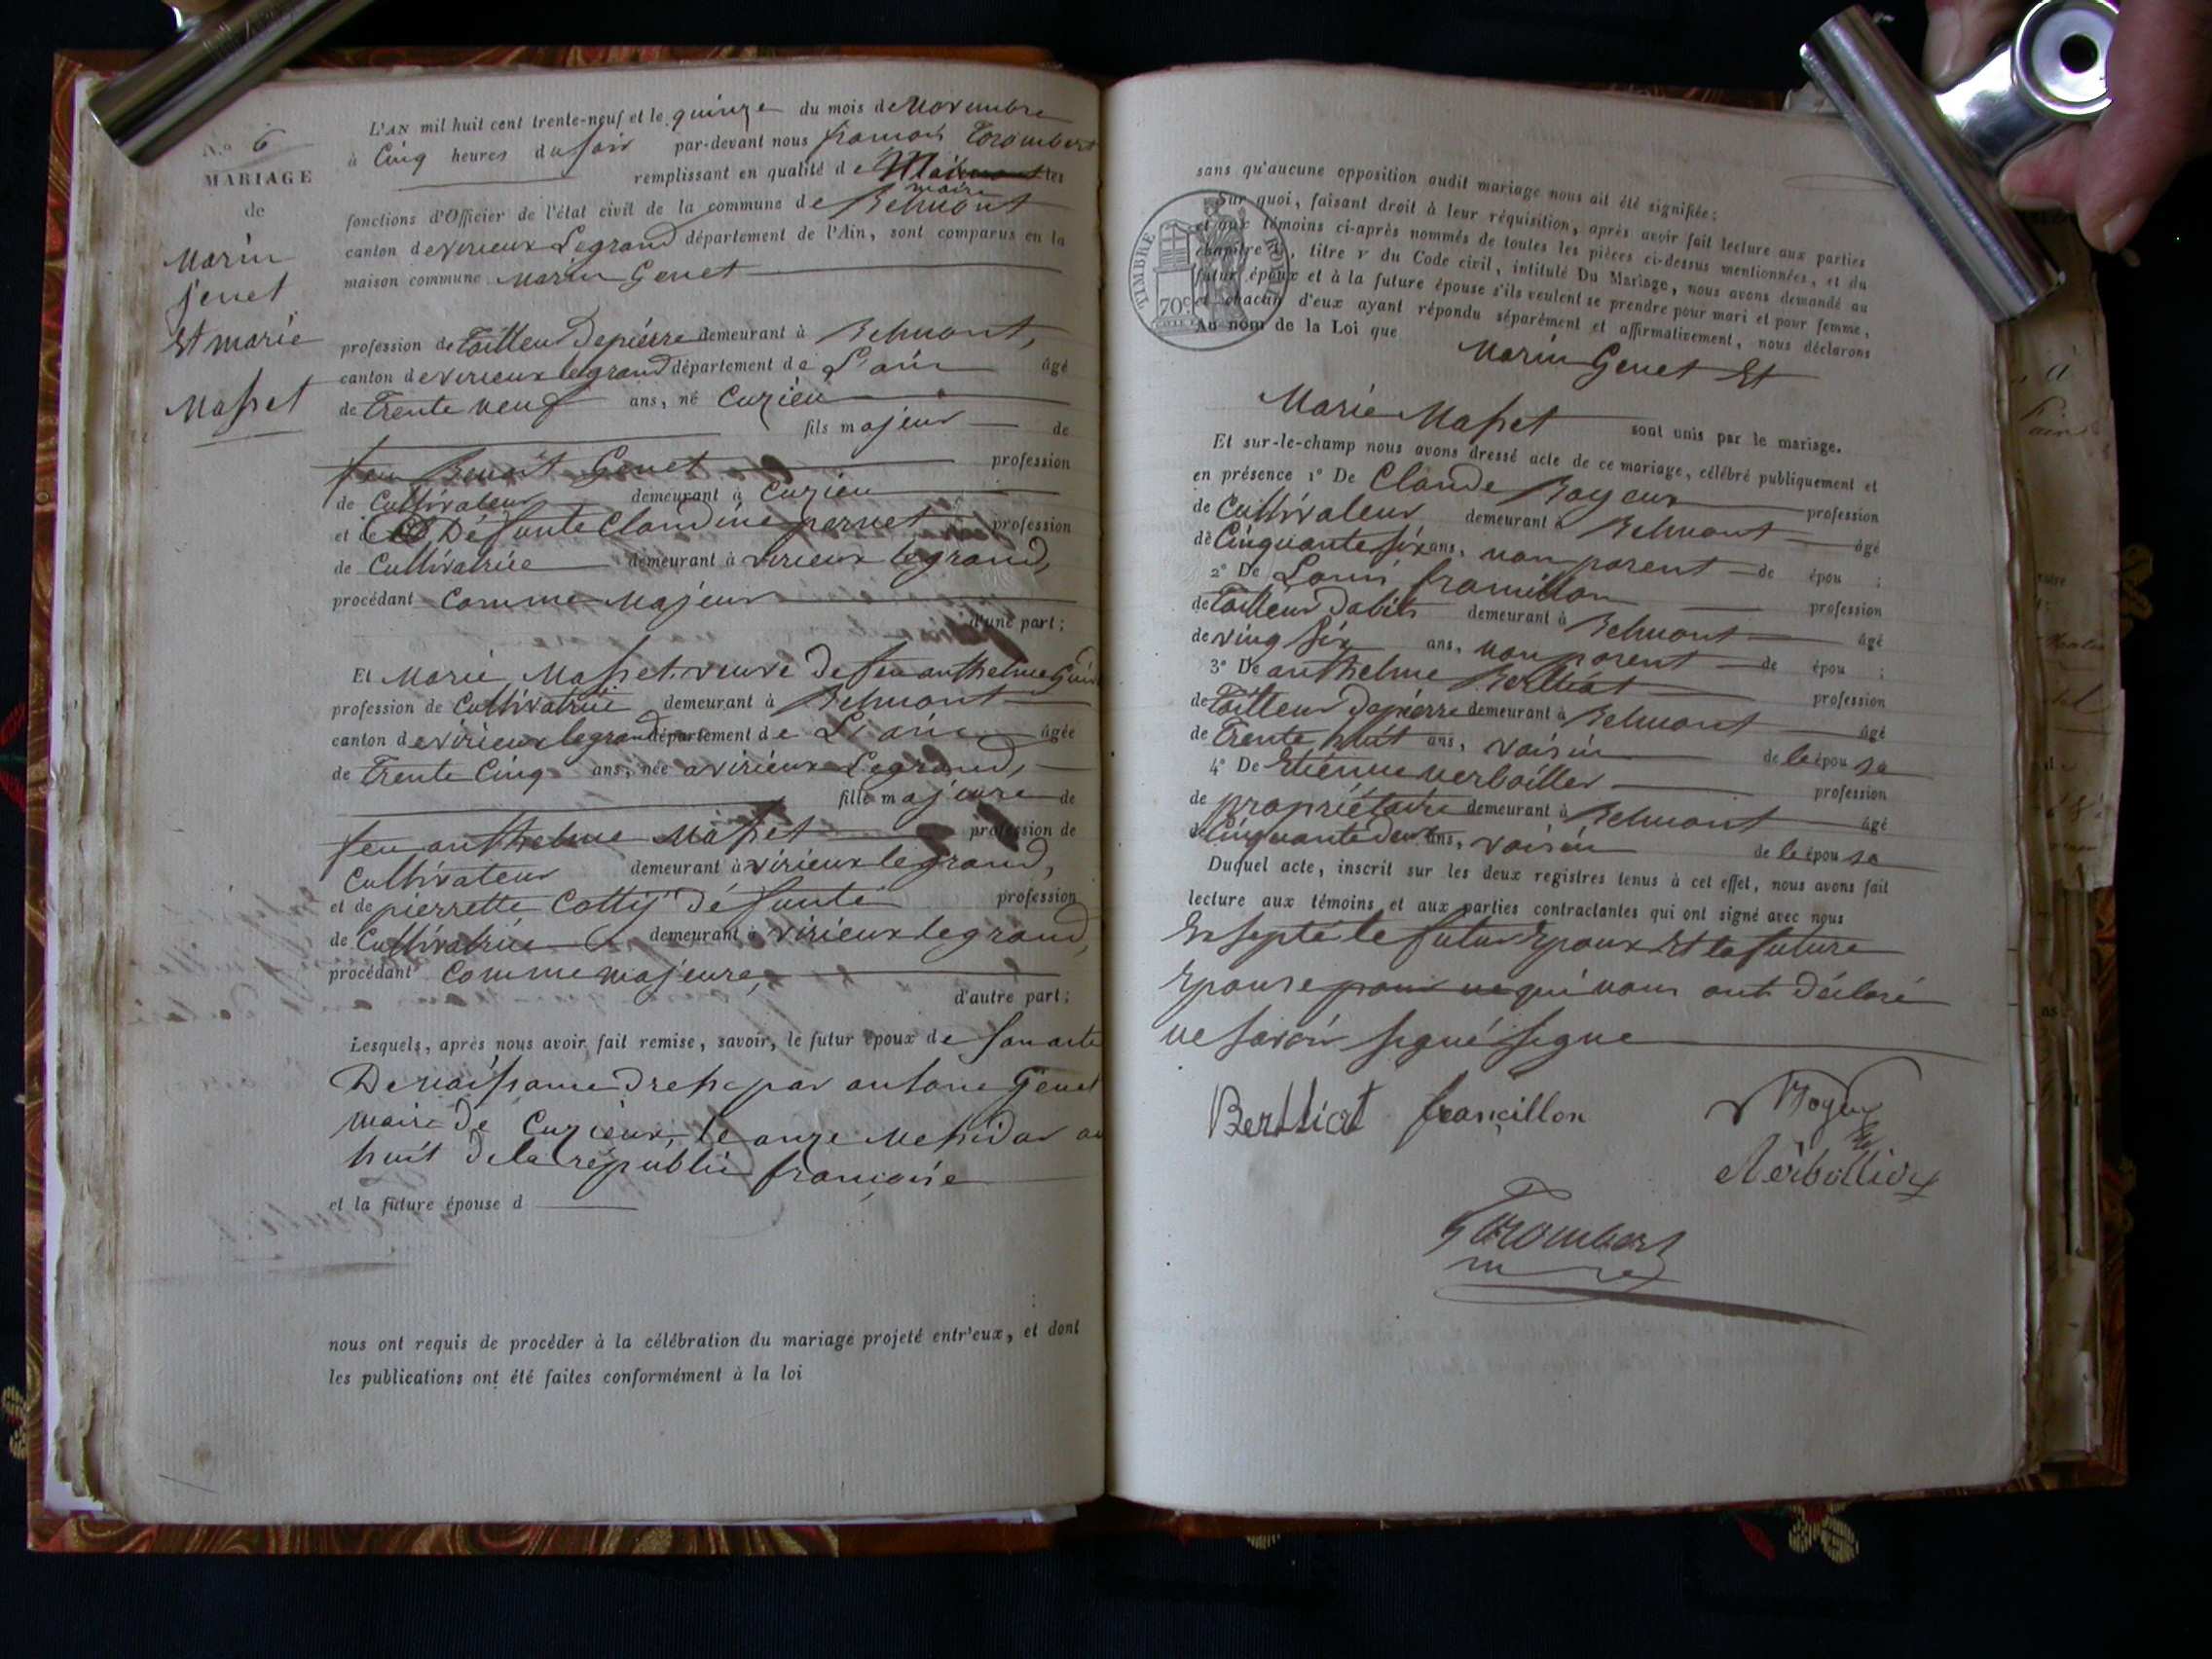 N.º 6
MARIAGE
de
Marin
Genet
Et marie
Masset
L'AN mil huit cent trente-neuf et le quinze du mois de Novembre
à Cinq heures du soir par-devant nous francois Trombert
remplissant en qualité de Maire les
maire
fonctions d'Officier de l'état civil de la commune de Belmont
canton de virieux Legrand département de l'Ain, sont comparus en la
maison commune Marin Genet
profession de Tailleur Depierre demeurant à Belmont,
canton de virieux legrand département de L'ain âgé
de Trente neuf ans, né Cuzieu
fils majeur de
feu Benoit Genet profession
de Cultivateur demeurant à Cuzieu
et de Défunte Claudine pernet profession
de Cultivatrice demeurant à virieux legrand,
procédant Comme Majeur
d'une part;
Et Marie Masset veuve de feu anthelme
profession de Cultivatrice demeurant à Belmont
canton de virieux legrand département de L'ain âgée
de Trente Cinq ans, née a virieux Legrand,
fille majeure de
feu anthelme Masset profession de
Cultivateur demeurant à virieux legrand,
et de pierrette Cottij défunte profession
de Cultivatrice demeurant à virieux legrand,
procédant Comme majeure,
d'autre part;
Lesquels, après nous avoir fait remise, savoir, le futur époux de son acte
De naissance dressé par antoine Genet
maire de Cuzieux, le onze Messidor an
huit de la républi francoise
et la future épouse d
nous ont requis de procéder à la célébration du mariage projeté entr'eux, et dont
les publications ont été faites conformément à la loi
sans qu'aucune opposition audit mariage nous ait été signifiée;
Sur quoi, faisant droit à leur réquisition, après avoir fait lecture aux parties
et aux témoins ci-après nommés de toutes les pièces ci-dessus mentionnées, et du
chapitre , titre V du Code civil, intitulé Du Mariage, nous avons demandé au
futur époux et à la future épouse s'ils veulent se prendre pour mari et pour femme,
et chacun d'eux ayant répondu séparément et affirmativement, nous déclarons
Au nom de la Loi que
TIMBRE ROYAL
70c
Marin Genet Et
Marie Masset sont unis par le mariage.
Et sur-le-champ nous avons dressé acte de ce mariage, célébré publiquement et
en présence 1º De Claude Royeux profession
de Cultivateur demeurant à Belmont âgé
de Cinquante six ans, non parent de épou ;
2º De Louis francillon profession
de Tailleur dabits demeurant à Belmont âgé
de ving six ans, non parent de épou ;
3º De anthelme Berlliat profession
de Tailleur Depierre demeurant à Belmont âgé
de Trente huit ans, voisin de le épou se
4º De Etienne verboiller profession
de propriétaire demeurant à Belmont âgé
de Cinquante deux ans, voisin de le épou se
Duquel acte, inscrit sur les deux registres tenus à cet effet, nous avons fait
lecture aux témoins et aux parties contractantes qui ont signé avec nous
Exsepté le futur Epoux Et la future
Epouse qui nous ont déclaré
ne savoir signé signe
Berlliat francillon Royeux
Trombert